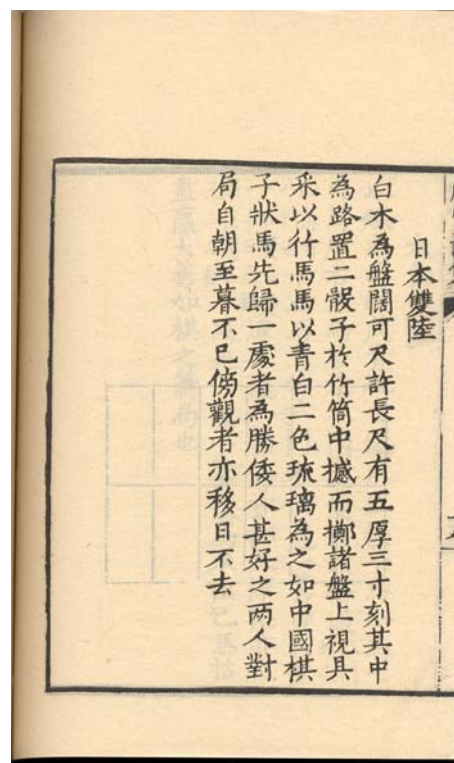 日本雙陸
白木為盤闊可尺許長尺有五厚三寸刻其中
為路置二骰子於竹筒中撼而擲諸盤上視具
采以行馬馬以青白二色琉璃為之如中國棋
子狀馬先歸一處者為勝倭人甚好之两人對
局自朝至暮不已傍觀者亦移日不去